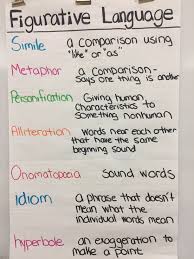 Figurative Language
Simile a comparison using
"like" or "as"
Metaphor a comparison-
says one thing is another
Personification Giving human
characteristics to
something nonhuman
Alliteration Words near each other
that have the same
beginning sound
Onomatopoeia sound words
Idiom a phrase that doesn't
mean what the
individual words mean
hyperbole an exaggeration to
make a point